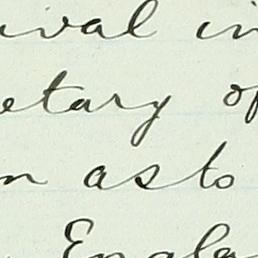 ival in
etary of
n as to
Engla